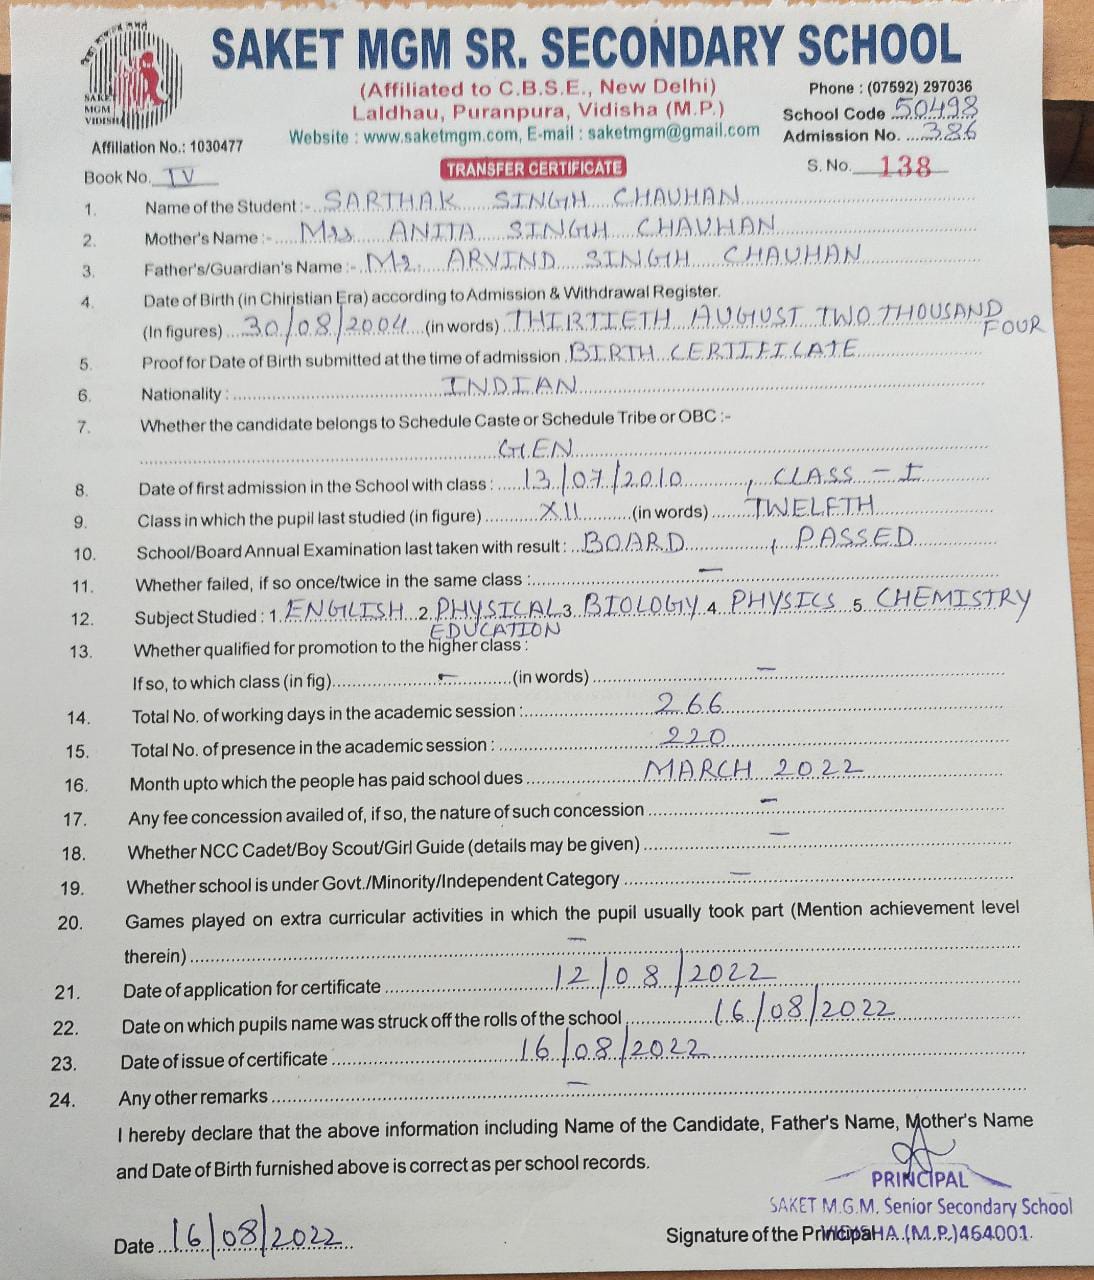 SAKET MGM SR. SECONDARY SCHOOL
(Affiliated to C.B.S.E., New Delhi)
Laldhau, Puranpura, Vidisha (M.P.)
Website : www.saketmgm.com, E-mail : saketmgm@gmail.com
SAKET
MGM
VIDISHA
Phone : (07592) 297036
School Code 50498
Admission No. 386
Affiliation No.: 1030477
TRANSFER CERTIFICATE
Book No. IV
S. No. 138
1. Name of the Student :- SARTHAK SINGH CHAUHAN
2. Mother's Name :- Mrs ANITA SINGH CHAUHAN
3. Father's/Guardian's Name :- Mr. ARVIND SINGH CHAUHAN
4. Date of Birth (in Chiristian Era) according to Admission & Withdrawal Register.
(In figures) 30/08/2004 (in words) THIRTIETH AUGUST TWO THOUSAND
FOUR
5. Proof for Date of Birth submitted at the time of admission BIRTH CERTIFICATE
6. Nationality : INDIAN
7. Whether the candidate belongs to Schedule Caste or Schedule Tribe or OBC :-
GEN
8. Date of first admission in the School with class : 13/07/2010, CLASS - I
9. Class in which the pupil last studied (in figure) XII (in words) TWELFTH
10. School/Board Annual Examination last taken with result : BOARD, PASSED
11. Whether failed, if so once/twice in the same class : -
12. Subject Studied : 1. ENGLISH 2. PHYSICAL 3. BIOLOGY 4. PHYSICS 5. CHEMISTRY
EDUCATION
13. Whether qualified for promotion to the higher class :
If so, to which class (in fig) - (in words) -
14. Total No. of working days in the academic session : 266
15. Total No. of presence in the academic session : 220
16. Month upto which the people has paid school dues MARCH 2022
17. Any fee concession availed of, if so, the nature of such concession -
18. Whether NCC Cadet/Boy Scout/Girl Guide (details may be given) -
19. Whether school is under Govt./Minority/Independent Category -
20. Games played on extra curricular activities in which the pupil usually took part (Mention achievement level
therein) -
21. Date of application for certificate 12/08/2022
22. Date on which pupils name was struck off the rolls of the school 16/08/2022
23. Date of issue of certificate 16/08/2022
24. Any other remarks -
I hereby declare that the above information including Name of the Candidate, Father's Name, Mother's Name
and Date of Birth furnished above is correct as per school records.
PRINCIPAL
SAKET M.G.M. Senior Secondary School
Date 16/08/2022
Signature of the Principal
VIDISHA (M.P.) 464001